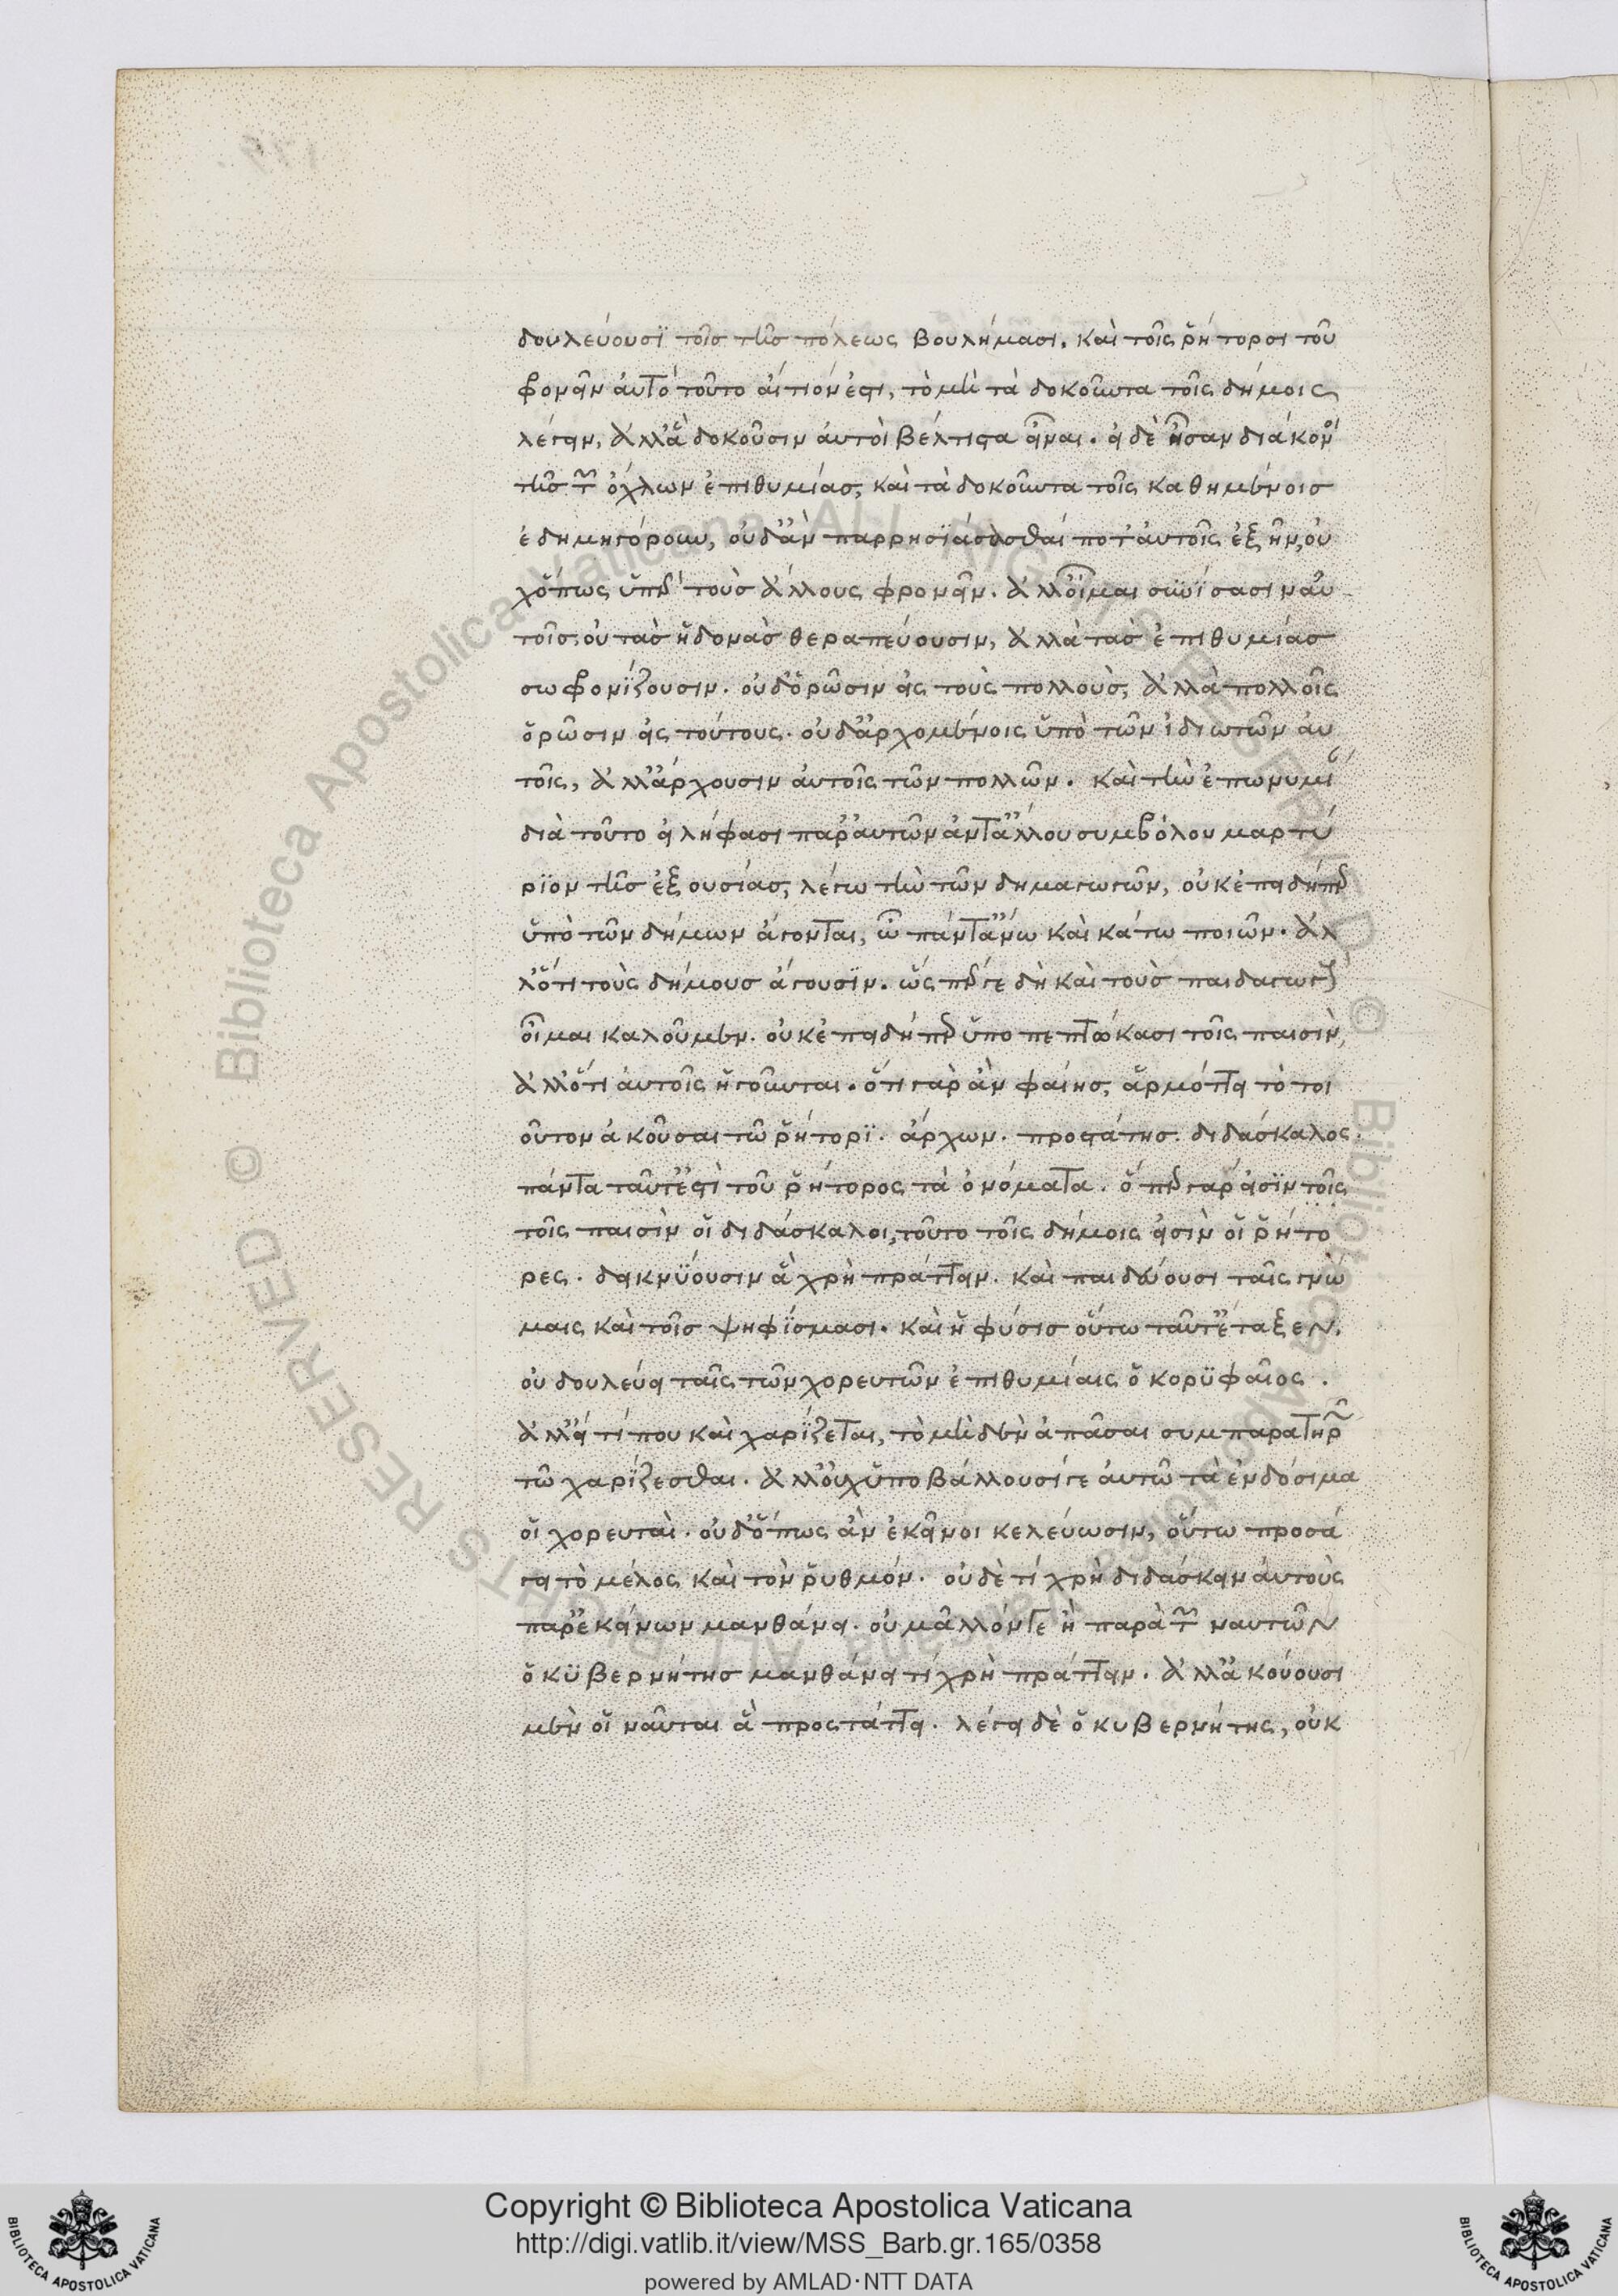 δουλεύουσϊ τοῖς τῆς πόλεως βουλήμασι. καὶ τοῖς ῥήτορσι τοῦ
φρονεῖν αὐτὸ τοῦτο αἴτιόν ἐστι, τὸ μὴ τὰ δοκοῦντα τοῖς δήμοις
λέγειν, ἀλλ' ἃ δοκοῦσιν αὐτοὶ βέλτιστα εἶναι. εἰ δὲ ἦσαν διάκονοι
τῆς τῶν ὄχλων ἐπιθυμίας, καὶ τὰ δοκοῦντα τοῖς καθημένοις
ἐδημηγόρουν, οὐδ' ἂν παρρησϊάσασθαί ποτ' αὐτοῖς ἐξῆν, οὐ
χ' ὅπως ὑπὲρ τοὺς ἄλλους φρονεῖν. ἀλλ' οἶμαι σϋνίσασιν αὑ
τοῖς, οὐ τὰς ἡδονὰς θεραπεύουσιν, ἀλλὰ τὰς ἐπιθυμίας
σωφρονΐζουσιν. οὐδ' ὁρῶσιν εἰς τοὺς πολλοὺς, ἀλλὰ πολλοῖς
ὁρῶσιν εἰς τούτους. οὐδ' ἀρχομένοις ὑπὸ τῶν ἰδιωτῶν αὐ
τοῖς, ἀλλ' ἄρχουσιν αὐτοῖς τῶν πολλῶν. καὶ τὴν ἐπωνυμί
διὰ τοῦτο εἰλήφασι παρ' αὐτῶν ἀντ' ἄλλου συμβόλου μαρτύ
ρϊον τῆς ἐξουσίας, λέγω τὴν τῶν δημαγωγῶν, οὐκ ἐπειδήπερ
ὑπὸ τῶν δήμων ἄγονται, ὦ πάντ' ἄνω καὶ κάτω ποιῶν. ἀλ
λ' ὅτι τοὺς δήμους ἄγουσϊν. ὥσπέρ γε δὴ καὶ τοὺς παιδαγωγοὺς
οἶμαι καλοῦμεν. οὐκ ἐπειδήπερ ὑποπεπτώκασι τοῖς παισὶν,
ἀλλ' ὅτι αὐτοῖς ἡγοῦνται. ὅτι γὰρ ἂν φαίης, ἁρμόττει τὸ τοι
οῦτον ἀκοῦσαι τῶ ῥήτορϊ. ἄρχων. προστάτης. διδάσκαλος.
πάντα ταῦτ' ἐστὶ τοῦ ῥήτορος τὰ ὀνόματα. ὅπερ γάρ εἰσϊν τοῖς
τοῖς παισὶν οἱ διδάσκαλοι, τοῦτο τοῖς δήμοις εἰσὶν οἱ ῥήτο
ρες. δεικνϋόυσιν ἃ χρὴ πράττειν. καὶ παιδεύουσι ταῖς γνώ
μαις καὶ τοῖς ψηφΐσμασι. καὶ ἡ φύσις οὕτω ταῦτ' ἔταξεν.
οὐ δουλεύει ταῖς τῶν χορευτῶν ἐπιθυμίαις ὁ κορϋφαῖος.
ἀλλ' εἴ τί που καὶ χαρΐζεται, τὸ μηδὲν ἀπᾶσαι συμπαρατηρ
τῶ χαρΐζεσθαι. ἀλλ' οὐχ ὑποβάλλουσί γε αὐτῶ τὰ ἐνδόσιμα
οἱ χορευταὶ. οὐδ' ὅπως ἂν ἐκεῖνοι κελεύωσιν, οὕτω προσά
γει τὸ μέλος καὶ τὸν ῥυθμόν. οὐδὲ τί χρὴ διδάσκειν αὐτοὺς
παρ' ἐκείνων μανθάνει. οὐ μᾶλλόν γε ἢ παρὰ τῶν ναυτῶν
ὁ κϋβερνήτης μανθάνει τί χρὴ πράττειν. ἀλλ' ἀκούουσι
μὲν οἱ ναῦται ἃ προστάττει. λέγει δὲ ὁ κυβερνήτης, οὐκ
Biblioteca Apostolica Vaticana ALL RIGHTS RESERVED ©
Biblioteca Apostolica Vaticana ALL RIGHTS RESERVED ©
Copyright © Biblioteca Apostolica Vaticana
http://digi.vatlib.it/view/MSS_Barb.gr.165/0358
powered by AMLAD·NTT DATA
BIBLIOTECA APOSTOLICA VATICANA
BIBLIOTECA APOSTOLICA VATICANA